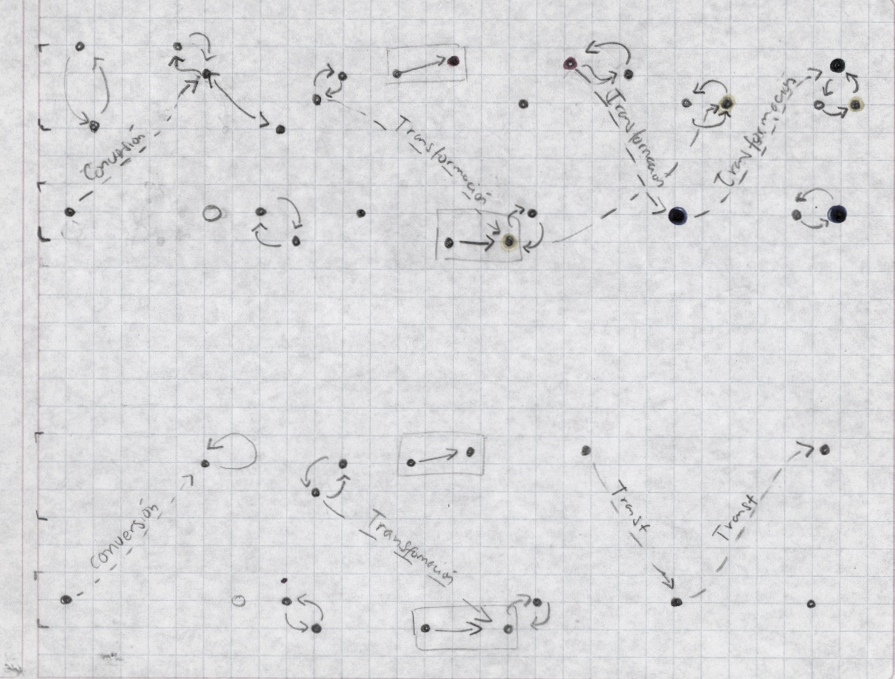 Conversión
Transformación
Transformación
Transformación
Conversión
Transformación
Transf
Transf